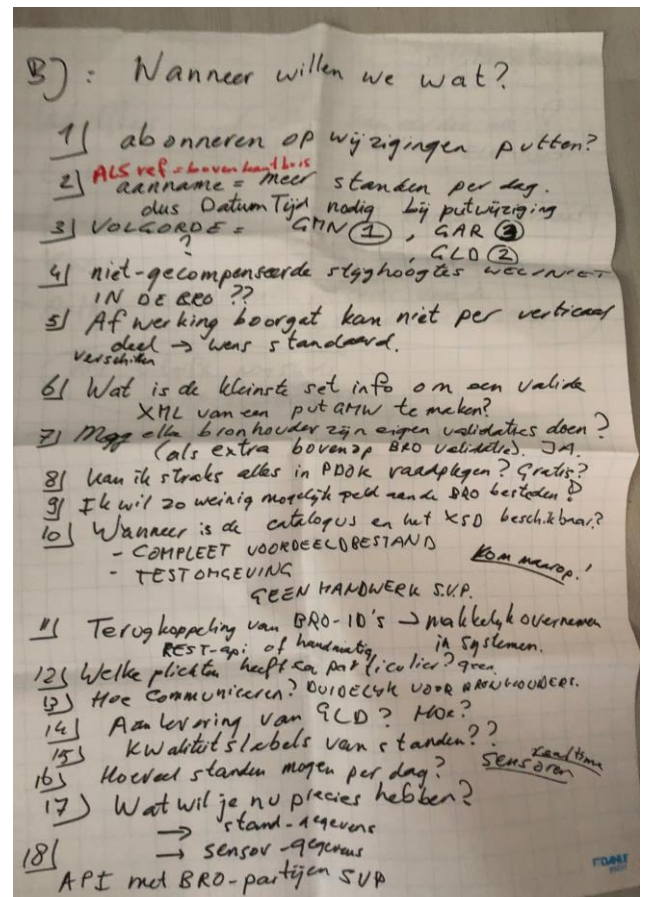 B) : Wanneer willen we wat?
1) abonneren op wijzigingen putten?
ALS ref = bovenkant buis
2) aanname = meer standen per dag.
dus DatumTijd nodig bij putwijziging
3) VOLGORDE = GMN ①, GAR ③
? , GLD ②
4) niet-gecompenseerde stijghoogtes WEL/NIET
IN DE BRO ??
5) Afwerking boorgat kan niet per verticaal
deel → wens standaard.
verschillen
6) Wat is de kleinste set info om een valide
XML van een put GMW te maken?
7) Mag elke bronhouder zijn eigen validaties doen?
(als extra bovenop BRO validatie). JA.
8) kan ik straks alles in PDOK raadplegen? Gratis?
9) Ik wil zo weinig mogelijk geld aan de BRO besteden!
10) Wanneer is de catalogus en het XSD beschikbaar?
- COMPLEET VOORBEELDBESTAND
- TESTOMGEVING Kom maar op!
GEEN HANDWERK S.V.P.
11) Terugkoppeling van BRO-ID's → makkelijk overnemen
REST-api of handmatig in systemen.
12) Welke plichten heeft een particulier? geen
13) Hoe communiceren? DUIDELIJK VOOR BRONHOUDERS.
14) Aanlevering van GLD? Hoe?
15) Kwaliteitslabels van standen??
16) Hoeveel standen mogen per dag? sensoren realtime
17) Wat wil je nu precies hebben?
→ stand-gegevens
→ sensor-gegevens
18)
API met BRO-partijen SVP